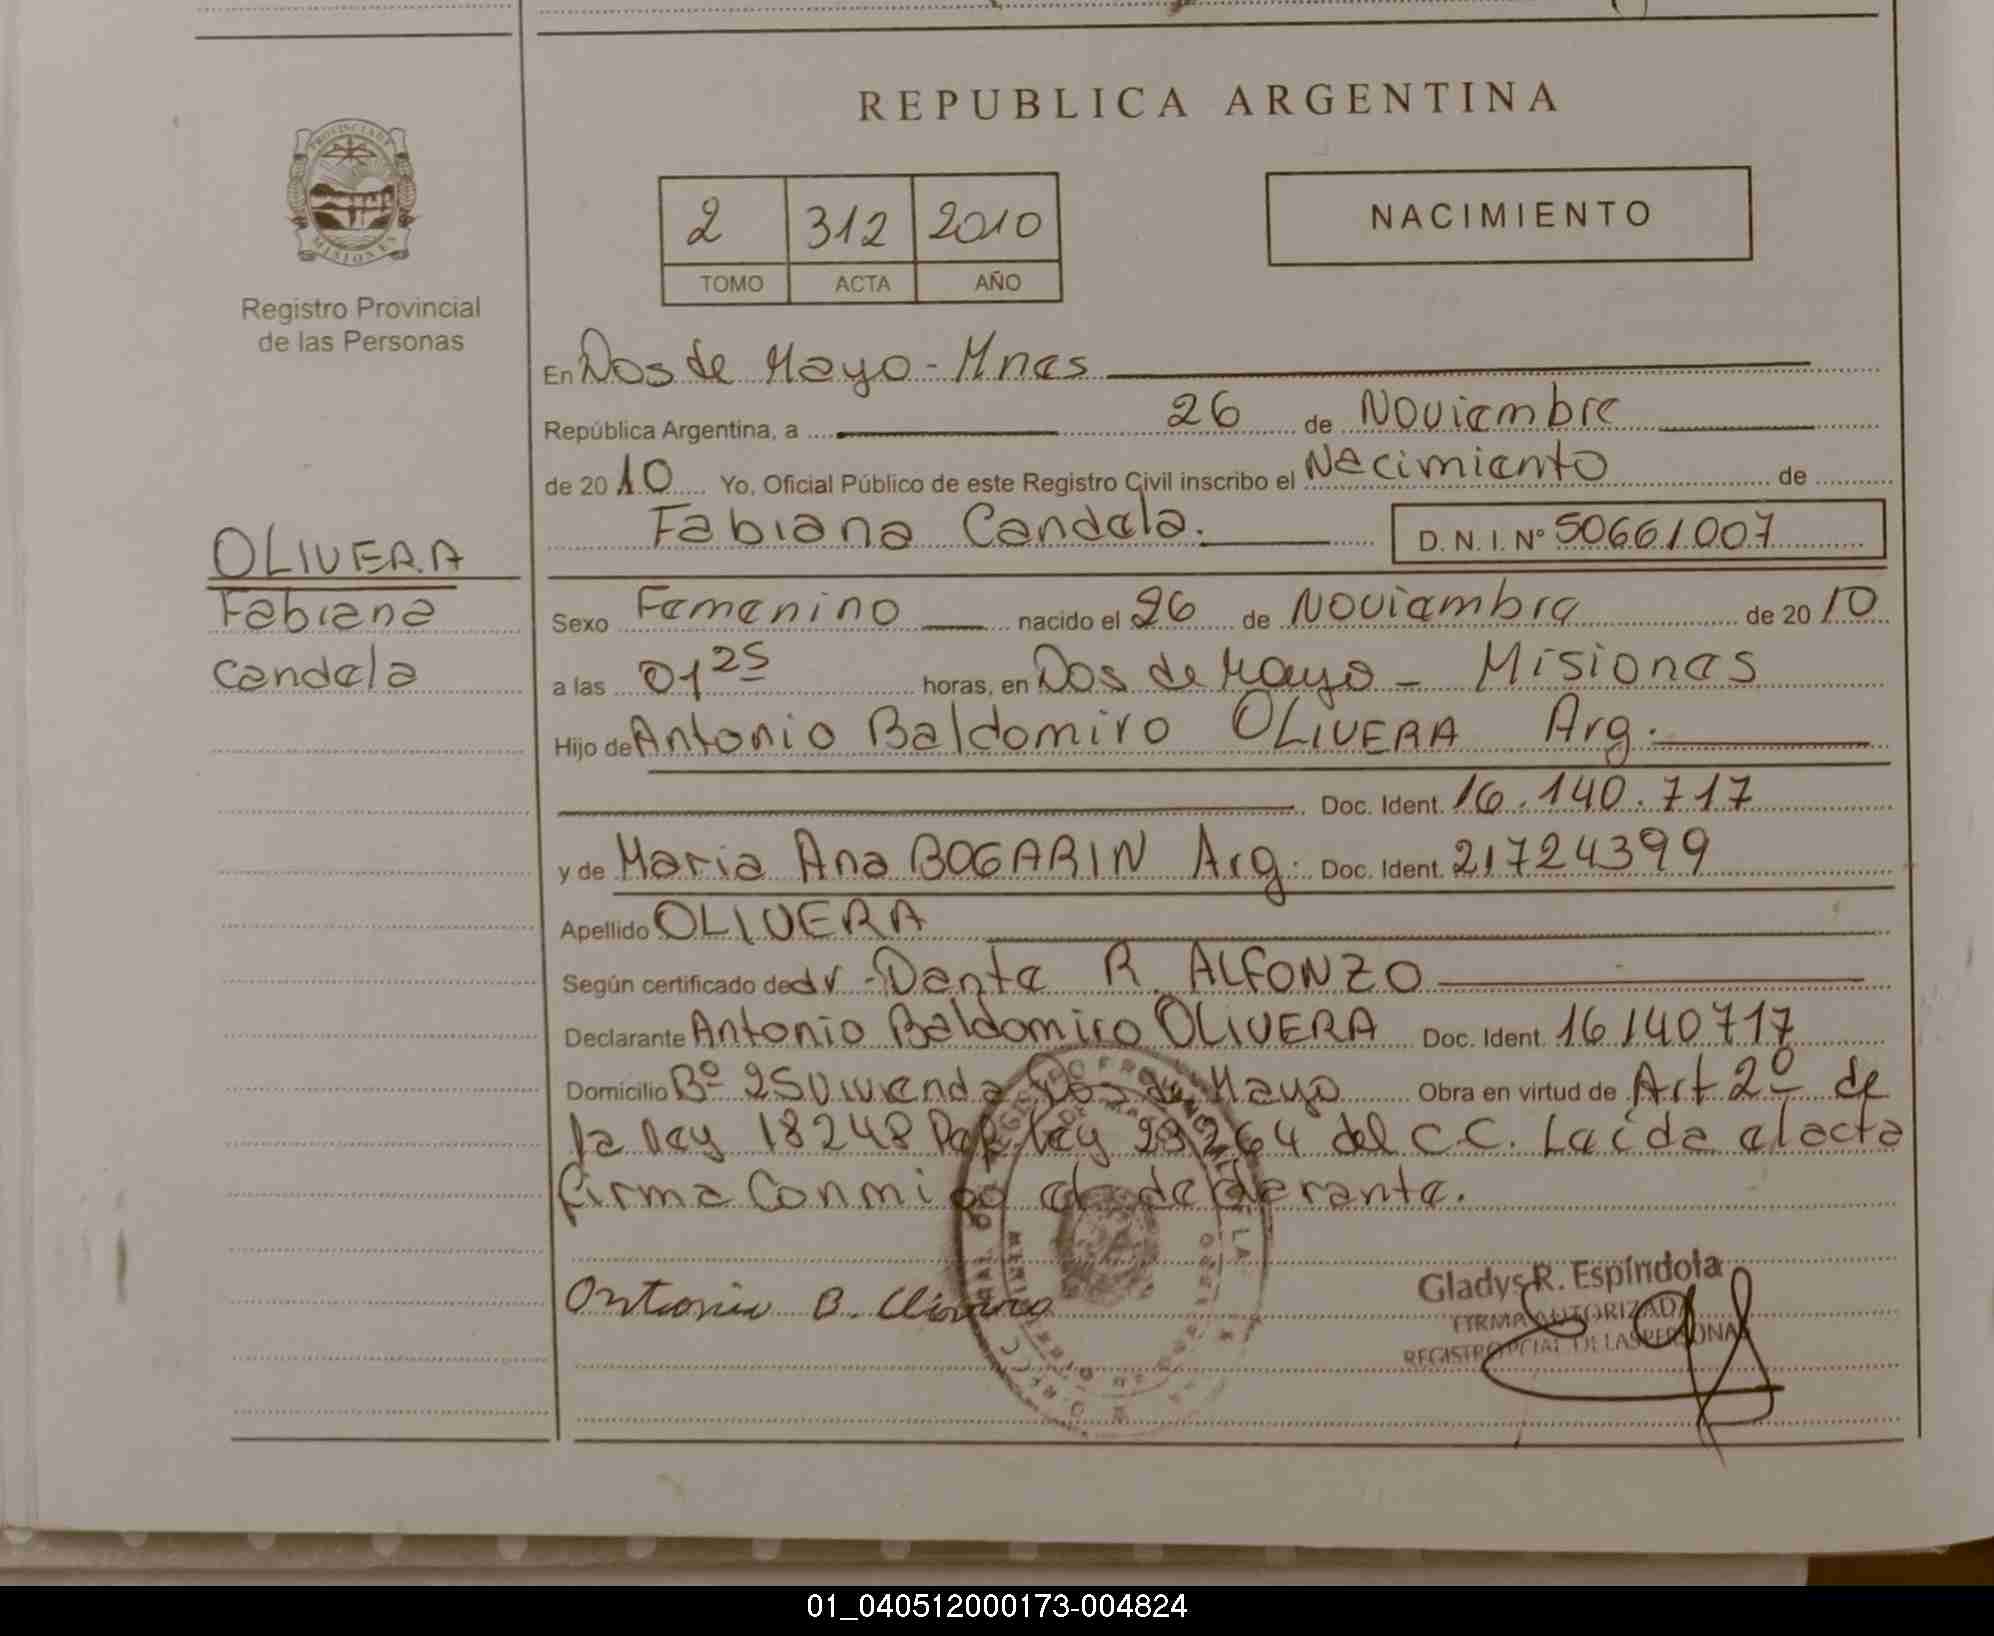 REPUBLICA ARGENTINA
PROVINCIA DE
MISIONES
Registro Provincial
de las Personas
2 312 2010
TOMO ACTA AÑO
NACIMIENTO
En Dos de Mayo - Mnes
República Argentina, a 26 de Noviembre
de 2010 Yo, Oficial Público de este Registro Civil inscribo el Nacimiento de
Fabiana Candela. D.N.I. Nº 50661007
OLIVERA
Fabiana
Candela
Sexo Femenino nacido el 26 de Noviembre de 2010
a las 01 25 horas, en Dos de Mayo - Misiones
Hijo de Antonio Baldomiro OLIVERA Arg.
Doc. Ident. 16.140.717
y de Maria Ana BOGARIN Arg. Doc. Ident. 21724399
Apellido OLIVERA
Según certificado de dr - Dante R. ALFONZO
Declarante Antonio Baldomiro OLIVERA Doc. Ident. 16140717
Domicilio Bº 25 Vivienda Dos de Mayo Obra en virtud de Art 2º de
la Ley 18248 Ley 23264 del C.C. Leida el acta
firma Conmigo el declarante.
Antonio B. Olivera
Gladys R. Espíndola
FIRMA AUTORIZADA
REGISTRO PCIAL DE LAS PERSONAS
01_040512000173-004824